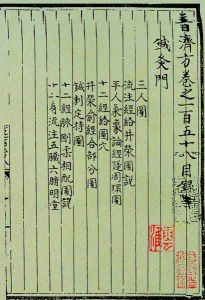 普濟方卷之一百五十八目錄
鍼灸門
三人圖
流注經絡井榮圖說
平人氣象論經隧周環圖
十二經絡圖穴
井榮俞經合部分圖
鍼刺定時圖
十二經脈剛柔相配圖說
十二身流注五臟六腑明堂